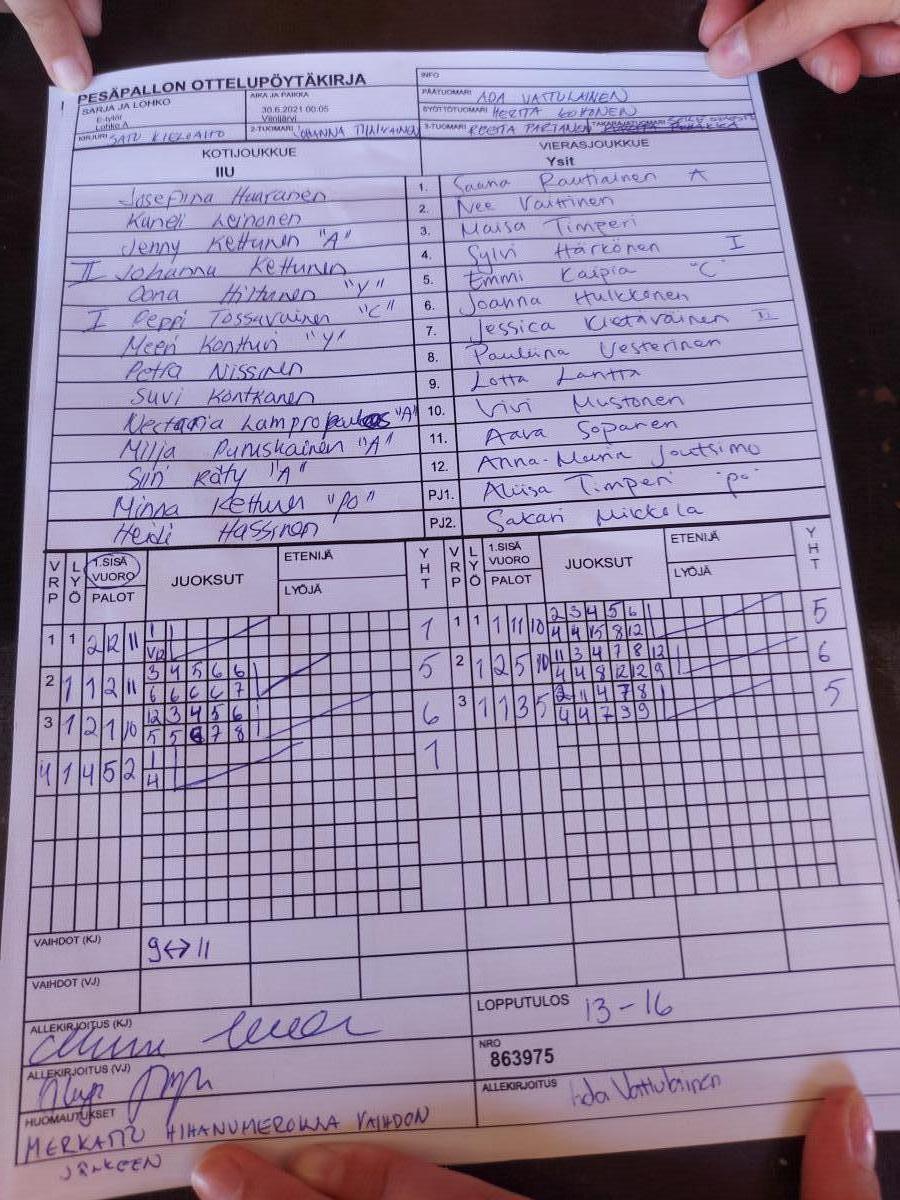 PESÄPALLON OTTELUPÖYTÄKIRJA
INFO
SARJA JA LOHKO
E-tytöt
Lohko A
AIKA JA PAIKKA
30.6.2021 00:05
PÄÄTUOMARI ADA VATTULAINEN
SYÖTTÖTUOMARI
KIRJURI SATU
2-TUOMARI
3-TUOMARI REETTA PARTANEN
TAKARAJATUOMARI
KOTIJOUKKUE
IIU
VIERASJOUKKUE
Ysit
Josefiina Huuranen 1. Saana Rautiainen A
Kuneli Leinonen 2. Nee Vaittinen
Jenny Kettunen "A" 3. Maisa Timperi
II Johanna Kettunen 4. Sylvi Härkönen I
Oona Hiltunen "Y" 5. Emmi Kaipia "C"
I Peppi Tossavainen "C" 6. Joanna Hulkkonen
Meeri Kontturi "Y" 7. Jessica Kietäväinen II
Petra Nissinen 8. Pauliina Vesterinen
Suvi Kontkanen 9. Lotta Lantta
Nectaria "A" 10. Vivi Mustonen
Milja Puruskainen "A" 11. Aava Soparen
Siiri Räty "A" 12. Anna-Maria Joutsimo
Minna Kettunen "PO" PJ1. Aliisa Timperi "po"
Heidi Hassinen PJ2. Sakari Mikkola
VRP LYÖ 1.SISÄ VUORO PALOT JUOKSUT ETENIJÄ LYÖJÄ YHT VRP LYÖ 1.SISÄ VUORO PALOT JUOKSUT ETENIJÄ LYÖJÄ YHT
1 1 2 12 11 1 1 1 1 1 11 10 2 3 4 5 6 5
V2 4 4 15 8 12
2 1 1 2 11 3 4 5 6 6 5 2 1 2 5 10 11 3 4 7 8 12 6
6 6 6 6 7 4 4 8 12 12 9
3 1 2 1 10 12 3 4 5 6 1 6 3 1 1 3 5 2 11 4 7 8 5
5 5 6 7 8 1 4 4 7 9 9
4 1 4 5 2 1 1
4
VAIHDOT (KJ) 9<->11
VAIHDOT (VJ)
ALLEKIRJOITUS (KJ)
LOPPUTULOS 13-16
ALLEKIRJOITUS (VJ)
NRO
863975
HUOMAUTUKSET
ALLEKIRJOITUS Ada Vattulainen
MERKATTU HIHANUMEROINA VAIHDON
JÄLKEEN